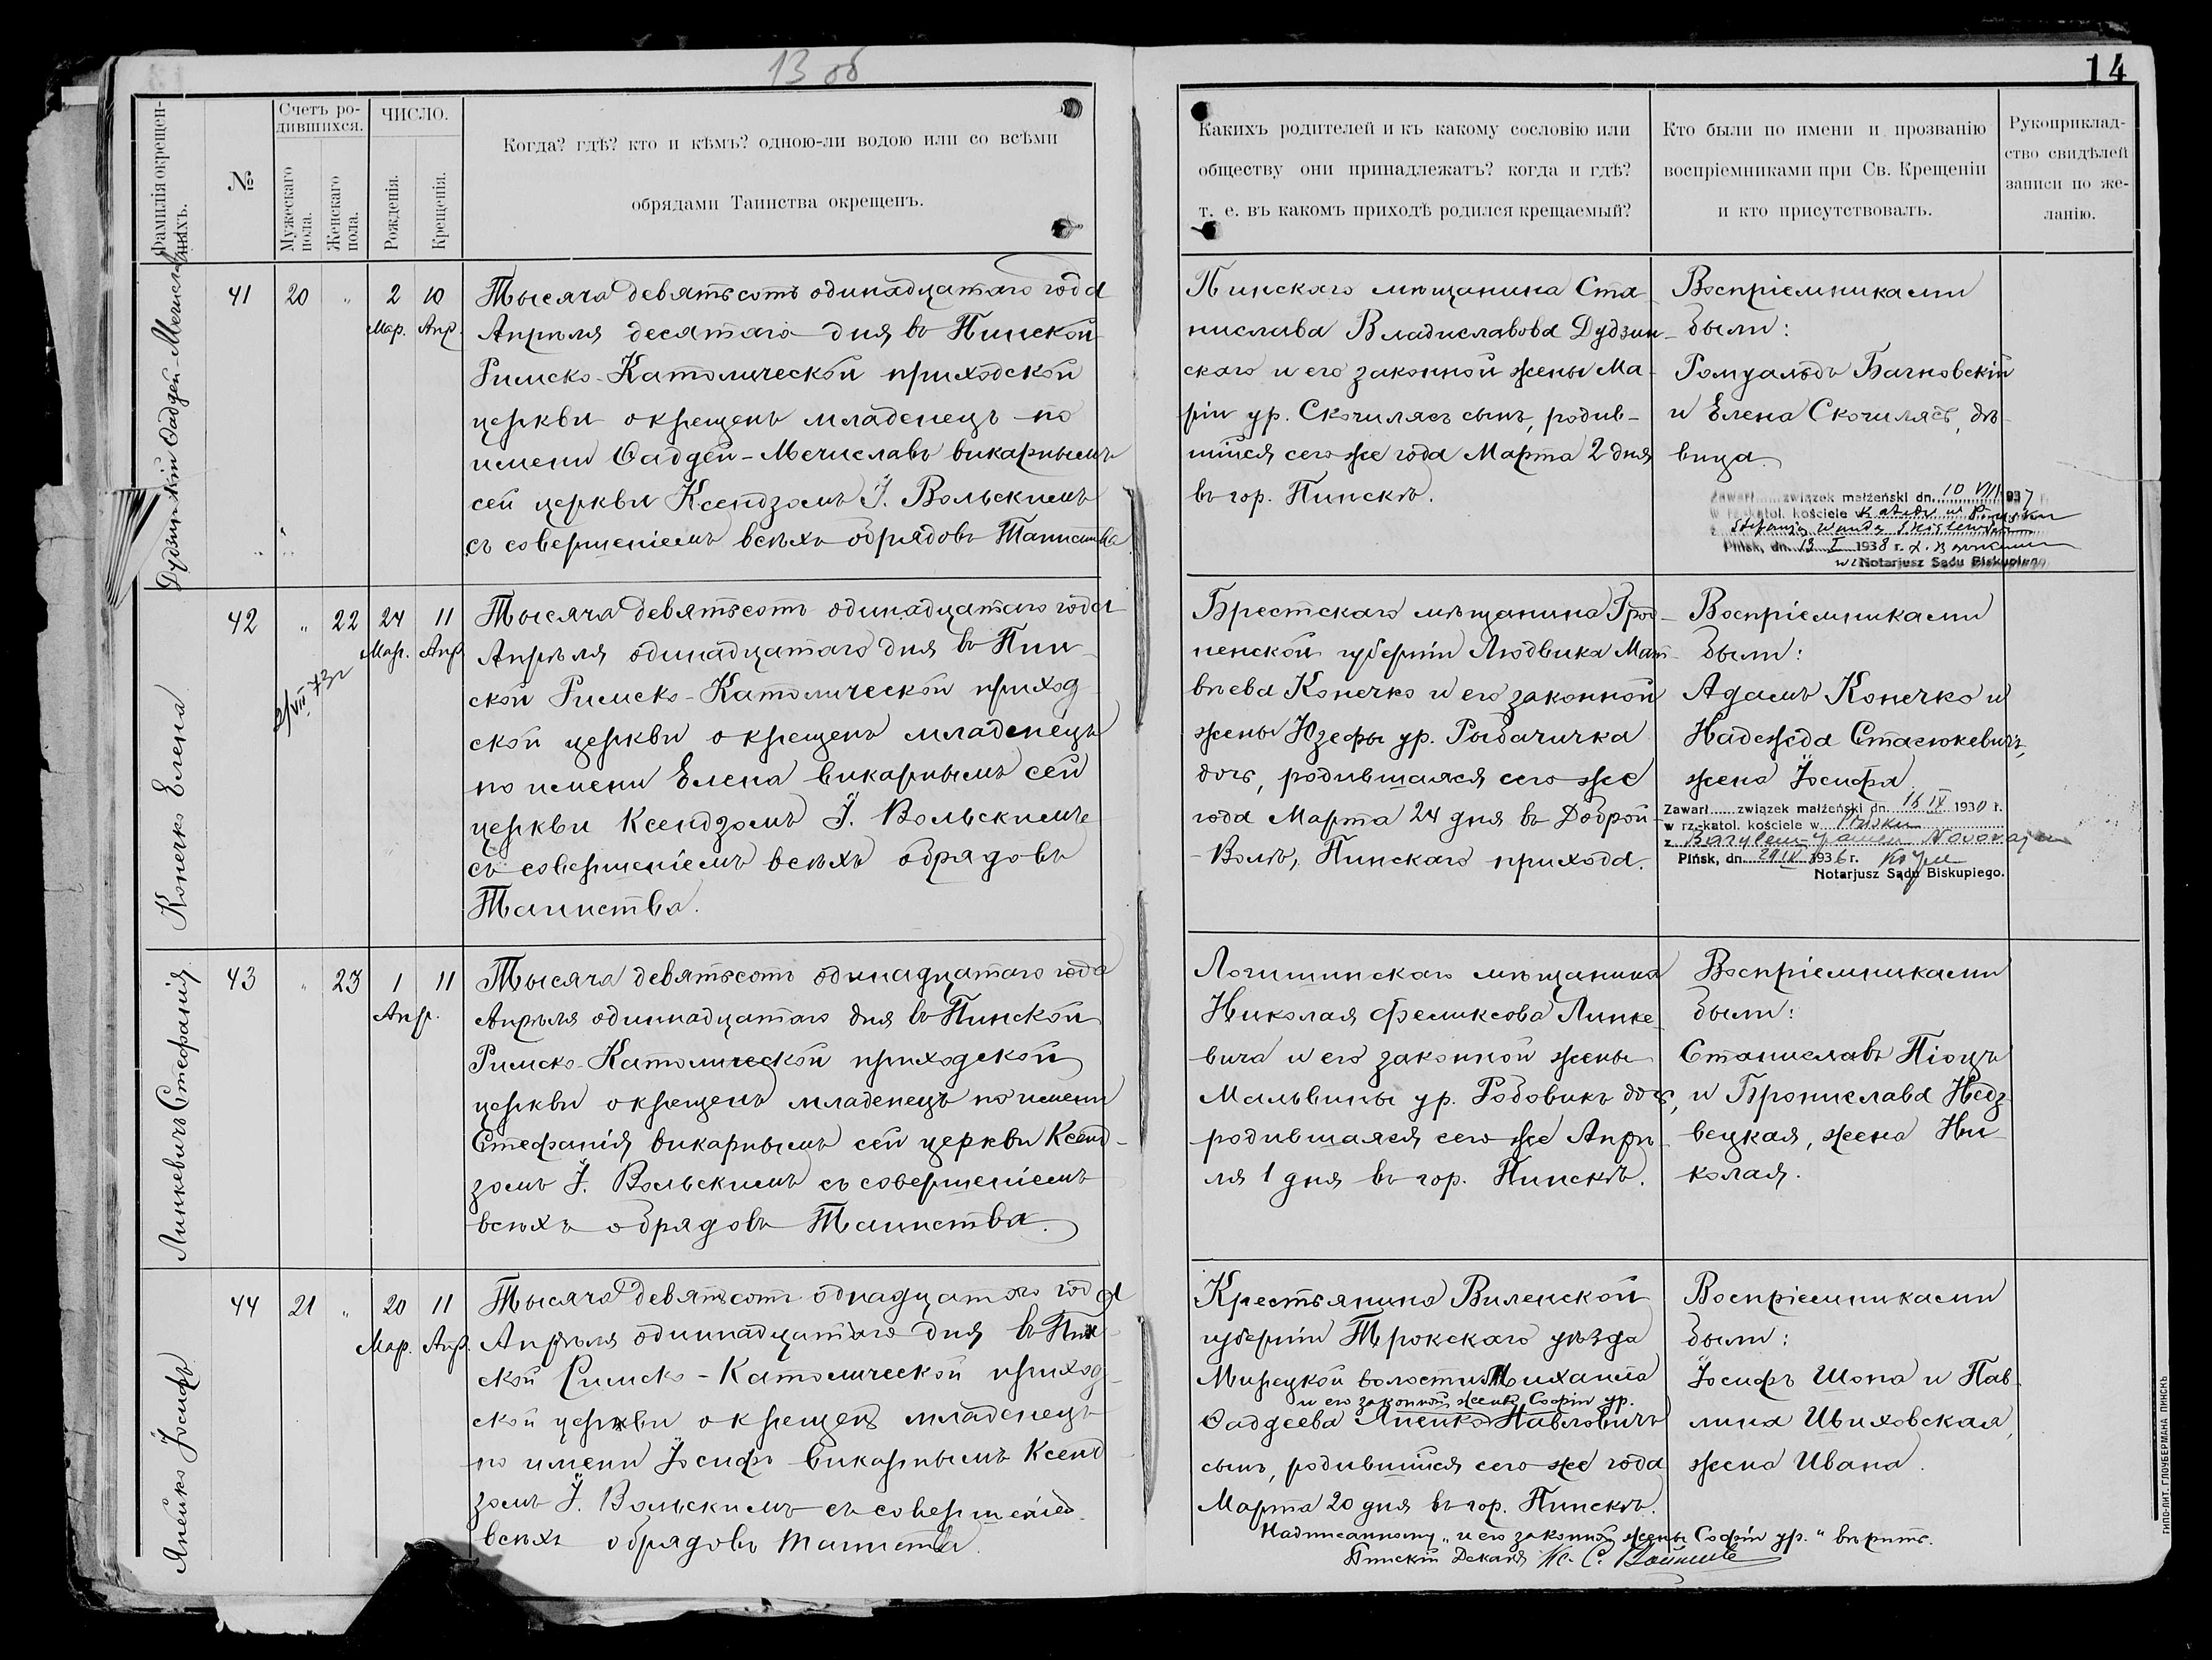 13 об
14
Фамилія окрещен-
ныхъ.
№
Счетъ ро-
дившихся.
Мужескаго
пола.
Женскаго
пола.
ЧИСЛО.
Рожденія.
Крещенія.
Когда? гдѣ? кто и кѣмъ? одною-ли водою или со всѣми
обрядами Таинства окрещенъ.
Какихъ родителей и къ какому сословію или
обществу они принадлежатъ? когда и гдѣ?
т. е. въ какомъ приходѣ родился крещаемый?
Кто были по имени и прозванію
воспріемниками при Св. Крещеніи
и кто присутствовалъ.
Рукоприклад-
ство свидѣлей
записи по же-
ланію.
Дудзинскій Ѳаддей-Мечиславъ
41 20 " 2 10
Мар. Апр.
Тысяча девятьсотъ одинадцатаго года
Апрѣля десятаго дня въ Пинской
Римско-Католической приходской
церкви окрещенъ младенецъ по
имени Ѳаддей-Мечиславъ викарнымъ
сей церкви Ксендзомъ І. Вольскимъ
съ совершеніемъ всѣхъ обрядовъ Таинства
Пинскаго мѣщанина Ста-
нислава Владиславова Дудзин-
скаго и его законной жены Ма-
ріи ур. Скочилясъ сынъ, родив-
шійся сего же года Марта 2 дня
въ гор. Пинскѣ.
Воспріемниками
были:
Ромуальдъ Бачковскій
и Елена Скочилясъ, дѣ-
вица.
Zawarł związek małżeński dn. 10 VIII 1937 r.
w rz.-katol. kościele w Katedr. w Pińsku
z Stefanją Wandą
Pińsk, dn. 13 I 1938 r.
Notarjusz Sądu Biskupiego
Конечко Елена
42 " 22 24 11
Мар. Апр
2/VII 73г
Тысяча девятьсотъ одинадцатаго года
Апрѣля одинадцатаго дня въ Пин-
ской Римско-Католической приход-
ской церкви окрещенъ младенецъ
по имени Елена викарнымъ сей
церкви Ксендзомъ І. Вольскимъ
съ совершеніемъ всѣхъ обрядовъ
Таинства.
Брестскаго мѣщанина Грод-
ненской губерніи Людвика Мат-
вѣева Конечко и его законной
жены Юзефы ур. Рыбачичка
дочь, родившаяся сего же
года Марта 24 дня въ Доброй-
-Волѣ, Пинскаго прихода.
Воспріемниками
были:
Адамъ Конечко и
Надежда Стасюкевичъ,
жена Іосифа
Zawarł związek małżeński dn. 16 IX 1930 r.
w rz.-katol. kościele w Pińsku
z Bazylem Janem
Pińsk, dn. 29 IX 1936 r.
Notarjusz Sądu Biskupiego.
Линкевичъ Стефанія
43 " 23 1 11
Апр.
Тысяча девятьсотъ одинадцатаго года
Апрѣля одиннадцатаго дня въ Пинской
Римско-Католической приходской
церкви окрещенъ младенецъ по имени
Стефанія викарнымъ сей церкви Ксенд-
зомъ І. Вольскимъ съ совершеніемъ
всѣхъ обрядовъ Таинства.
Логишинскаго мѣщанина
Николая Феликсова Линке-
вича и его законной жены
Мальвины ур. Родовикъ дочь,
родившаяся сего же Апрѣ-
ля 1 дня въ гор. Пинскѣ.
Воспріемниками
были:
Станиславъ Піоцъ
и Бронислава Недз-
вецкая, жена Ни-
колая.
Янейко Іосифъ
44 21 " 20 11
Мар. Апр.
Тысяча девятьсотъ однадцатаго года
Апрѣля одиннадцатаго дня въ Пин-
ской Римско-Католической приход-
ской церкви окрещенъ младенецъ
по имени Іосифъ викарнымъ Ксенд
зомъ І. Вольскимъ съ совершеніем
всѣхъ обрядовъ Таинства.
Крестьянина Виленской
губерніи Трокскаго уѣзда
Мирецкой волости Михаила
и его законной жены Софіи ур.
Ѳаддеева Янейко Павловичъ
сынъ, родившійся сего же года
Марта 20 дня въ гор. Пинскѣ.
Воспріемниками
были:
Іосифъ Шопа и Пав-
лина Цвиховская,
жена Ивана.
Надписанному „и его законной жены Софіи ур." вѣрить.
Пинскій Деканъ К. С.
ТИПО-ЛИТ. ГЛОУБЕРМАНА ПИНСКЪ